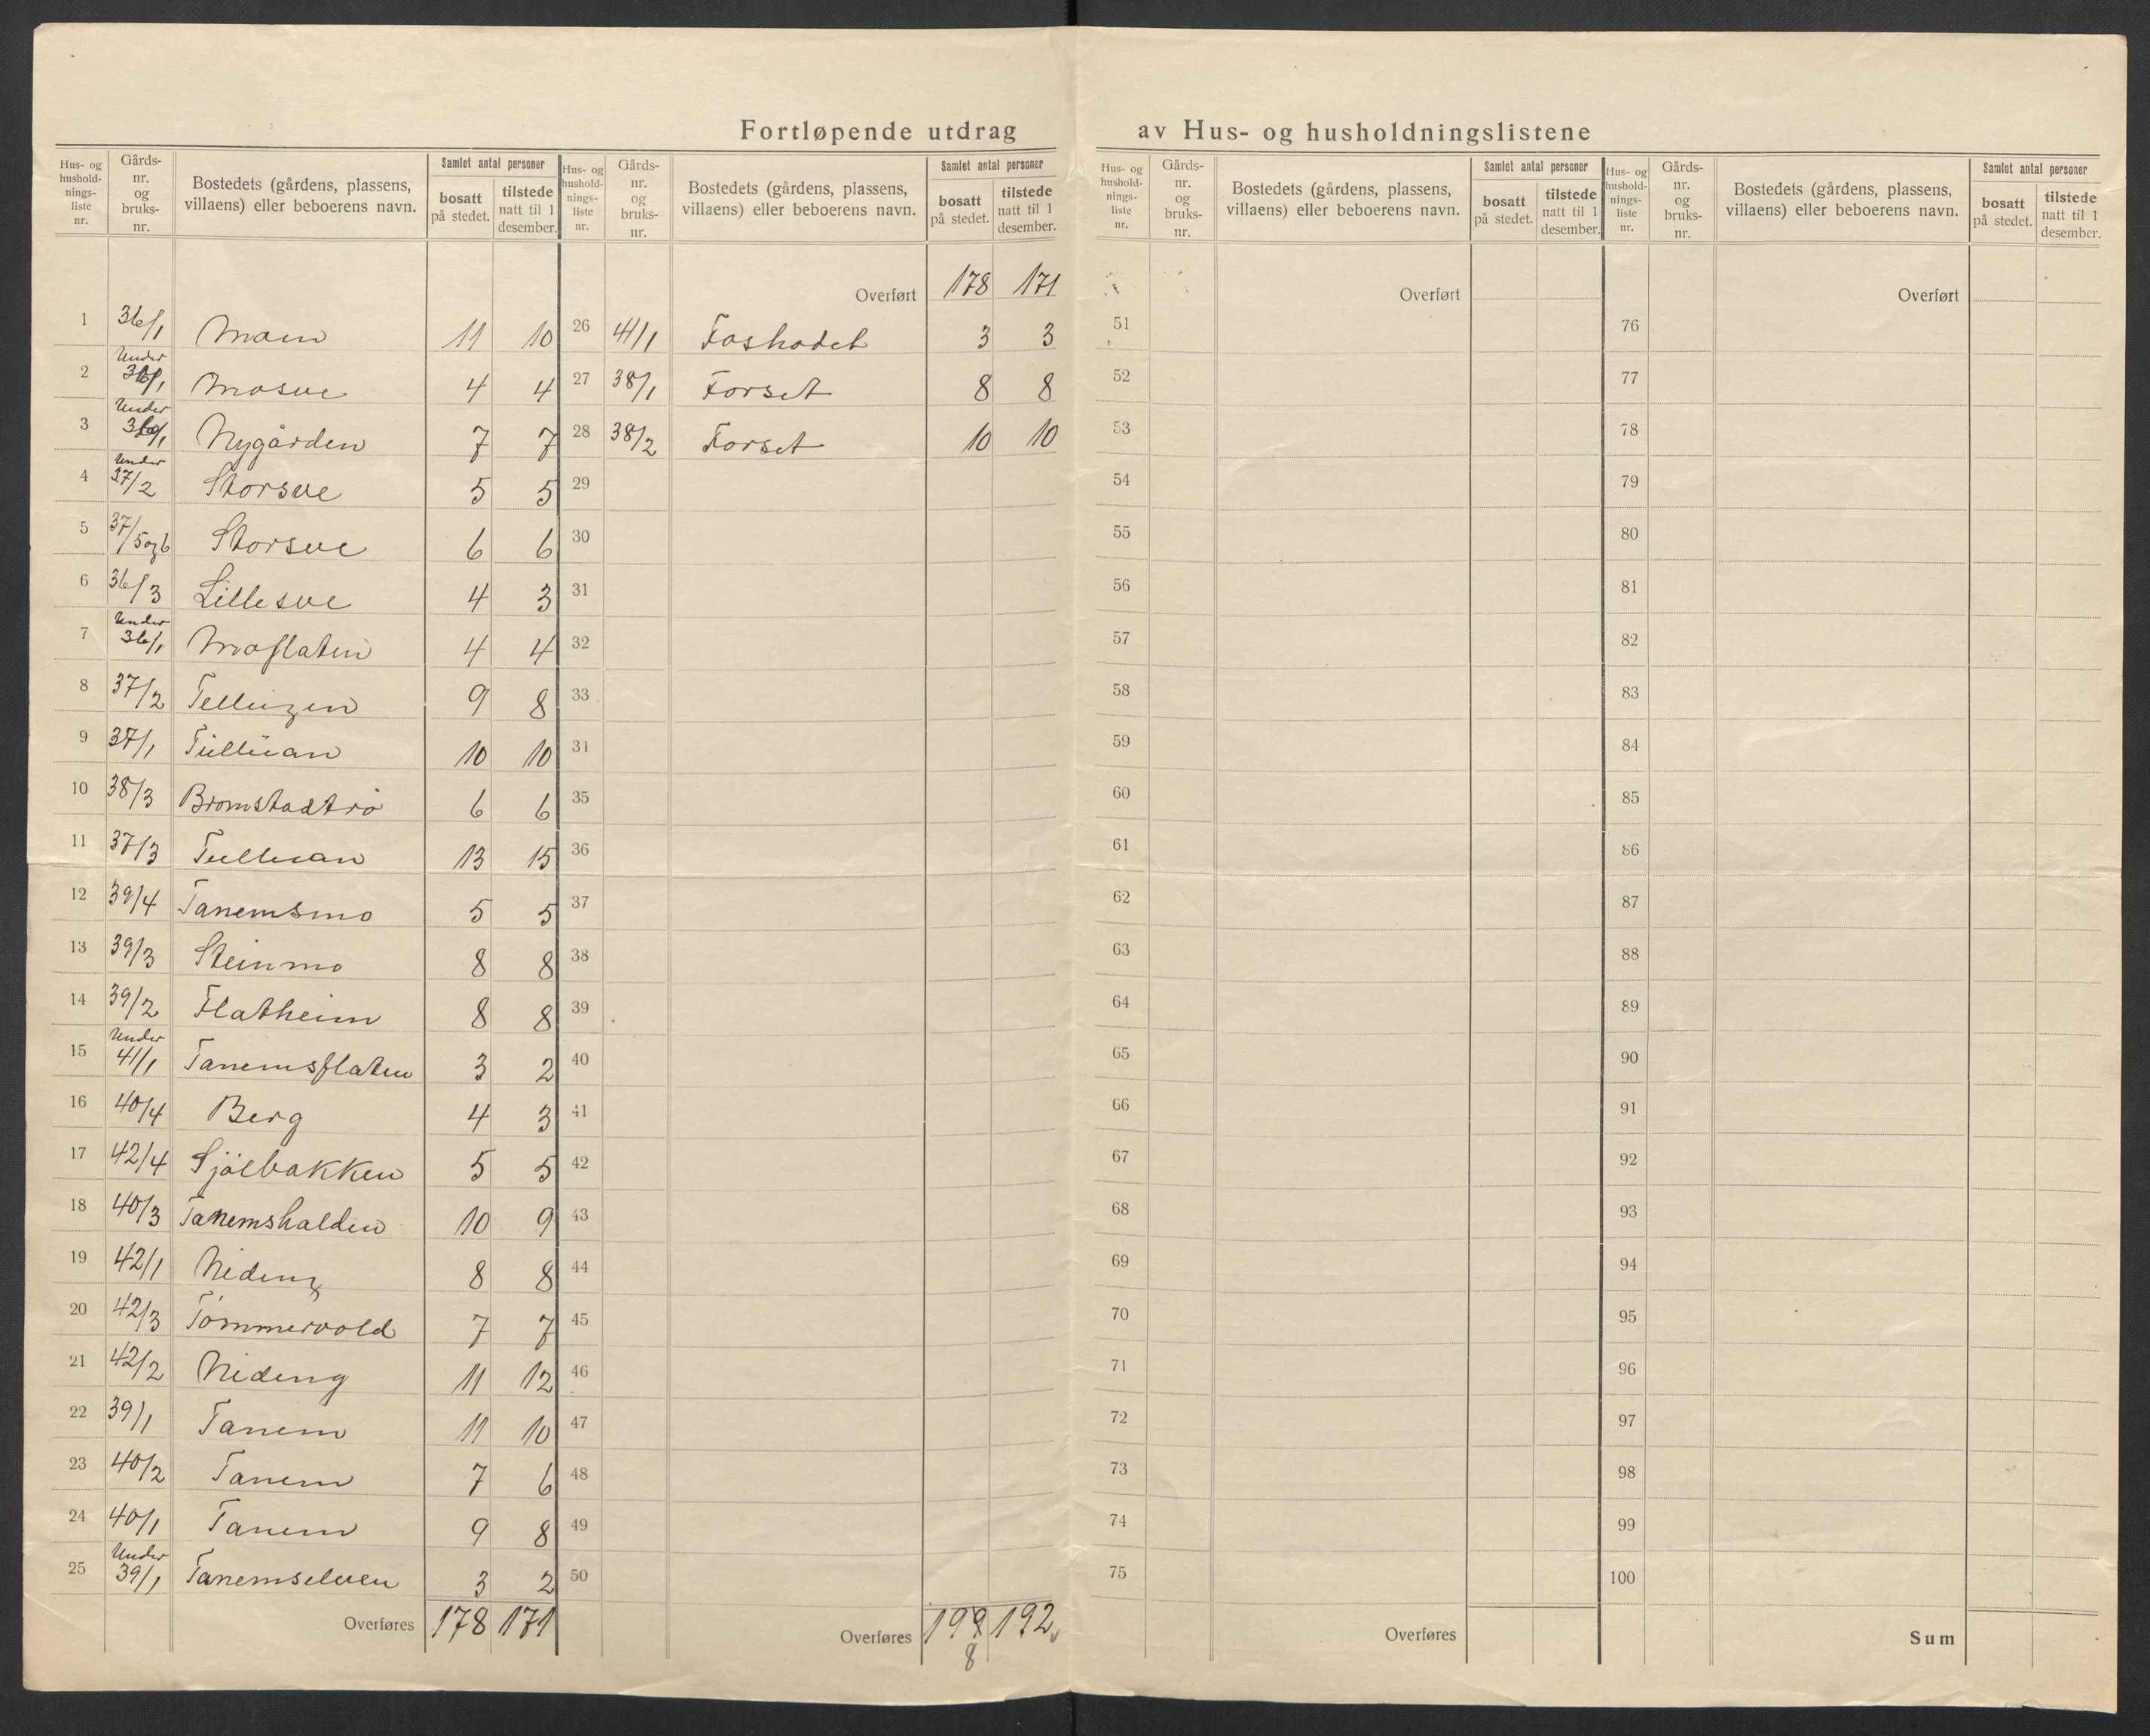 Fortløpende utdrag av Hus- og husholdningslistene
Hus- og husholdnings- liste nr. | Gårds- nr. og bruks- nr. | Bostedets (gårdens, plassens, villaens) eller beboerens navn. | Samlet antal personer | bosatt på stedet. | tilstede natt til 1 desember.
1 36/1 Moen 11 10
2 Under 36/1 Mosve 4 4
3 Under 36/1 Nygården 7 7
4 Under 37/2 Storsve 5 5
5 37/5 og 6 Storsve 6 6
6 36/3 Lillesve 4 3
7 Under 36/1 Moflaten 4 4
8 37/2 9 8
9 37/1 Tulluan 10 10
10 38/3 Bromstadtrø 6 6
11 37/3 Tulluan 13 15
12 39/4 Tanemsmo 5 5
13 39/3 Steinmo 8 8
14 39/2 Flatheim 8 8
15 Under 41/1 Tanemsflaten 3 2
16 40/4 Berg 4 3
17 42/4 Sjølbakken 5 5
18 40/3 Tanemshalden 10 9
19 42/1 Nideng 8 8
20 42/3 Tømmervold 7 7
21 42/2 Nideng 11 12
22 39/1 Tanem 11 10
23 40/2 Tanem 7 6
24 40/1 Tanem 9 8
25 Under 39/1 Tanemselven 3 2
Overføres 178 171
Hus- og husholdnings- liste nr. | Gårds- nr. og bruks- nr. | Bostedets (gårdens, plassens, villaens) eller beboerens navn. | Samlet antal personer | bosatt på stedet. | tilstede natt til 1 desember.
Overført 178 171
26 41/1 Foshodet 3 3
27 38/1 Forset 8 8
28 38/2 Forset 10 10
29
30
31
32
33
34
35
36
37
38
39
40
41
42
43
44
45
46
47
48
49
50
Overføres 199 192
8
Hus- og husholdnings- liste nr. | Gårds- nr. og bruks- nr. | Bostedets (gårdens, plassens, villaens) eller beboerens navn. | Samlet antal personer | bosatt på stedet. | tilstede natt til 1 desember.
Overført
51
52
53
54
55
56
57
58
59
60
61
62
63
64
65
66
67
68
69
70
71
72
73
74
75
Overføres
Hus- og husholdnings- liste nr. | Gårds- nr. og bruks- nr. | Bostedets (gårdens, plassens, villaens) eller beboerens navn. | Samlet antal personer | bosatt på stedet. | tilstede natt til 1 desember.
Overført
76
77
78
79
80
81
82
83
84
85
86
87
88
89
90
91
92
93
94
95
96
97
98
99
100
Sum